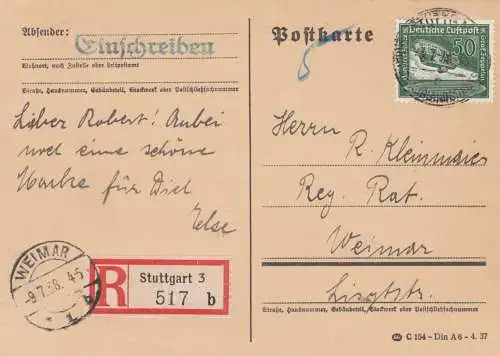 Absender:
Einschreiben
Wohnort, auch Zustell- oder Leitpostamt
Straße, Hausnummer, Gebäudeteil, Stockwerk oder Postschließfachnummer
Lieber Robert! Anbei
noch eine schöne
Marke für Dich
Else
WEIMAR
-9.7.38. 4-5
1 b
R
Stuttgart 3
517 b
Postkarte
5
Deutsche Luftpost
50
Graf Zeppelin
Herrn
R. Kleinmaier
Reg. Rat.
Weimar
Lisztstr.
Straße, Hausnummer, Gebäudeteil, Stockwerk oder Postschließfachnummer
C 154 - Din A 6 - 4. 37